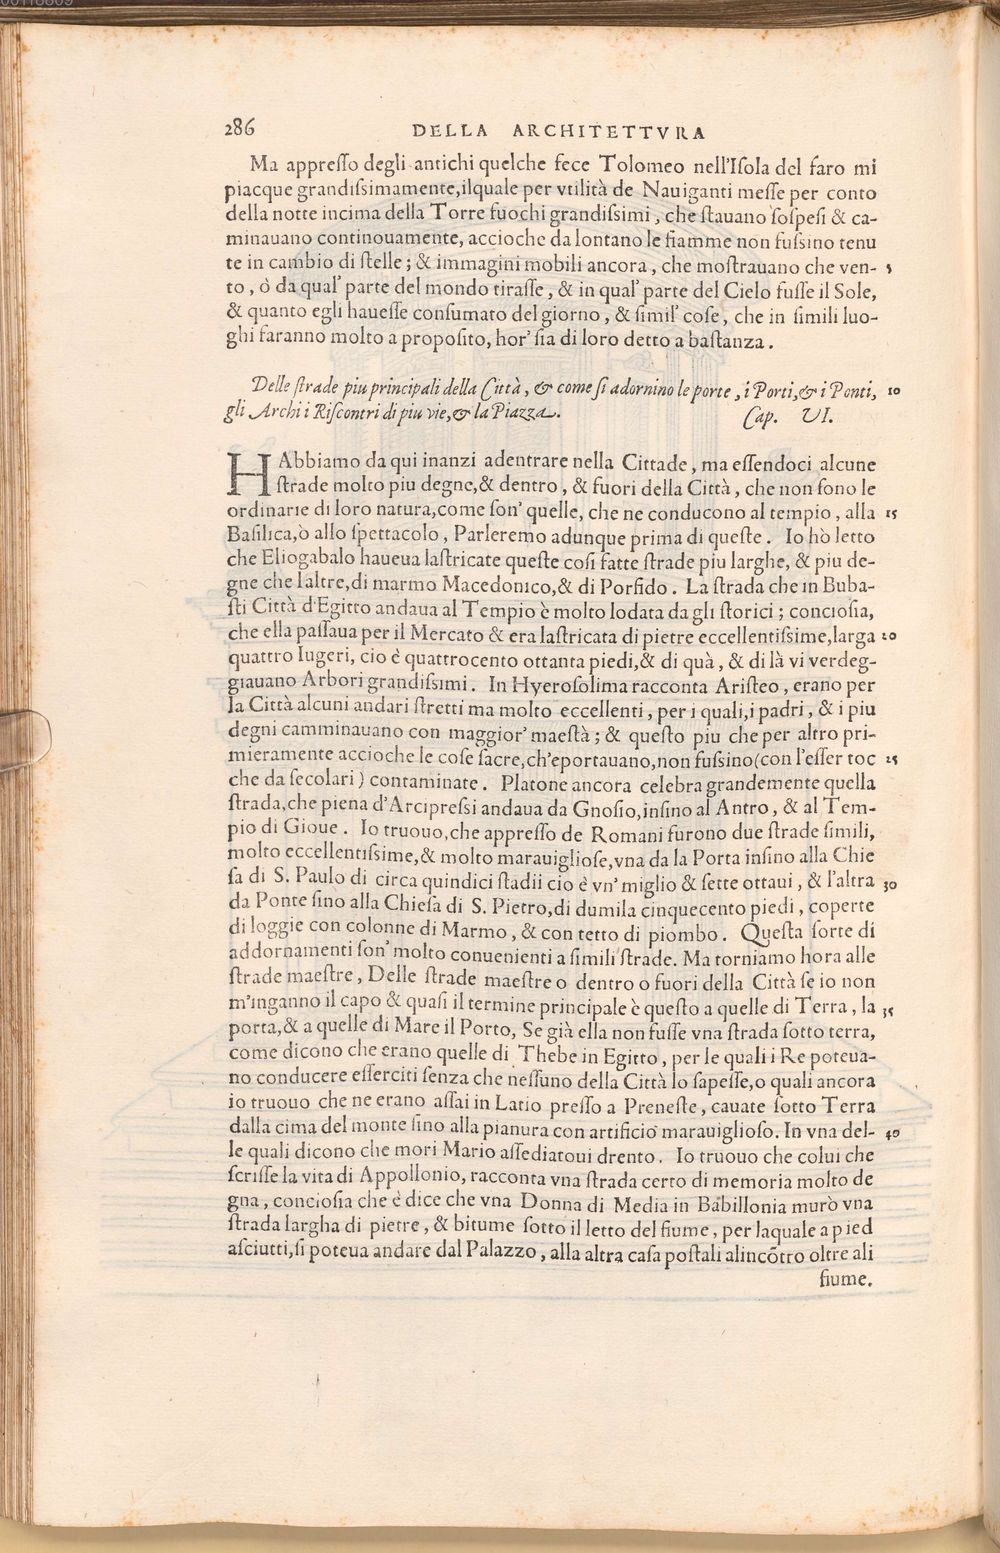 00118809
286 DELLA ARCHITETTVRA
Ma appreſſo degli antichi quelche fece Tolomeo nell'Iſola del faro mi
piacque grandiſsimamente,ilquale per vtilità de Nauiganti meſſe per conto
della notte incima della Torre fuochi grandiſsimi, che ſtauano ſoſpeſi & ca-
minauano continouamente, accioche da lontano le fiamme non fuſsino tenu
te in cambio di ſtelle; & immagini mobili ancora, che moſtrauano che ven- 5
to, ò da qual' parte del mondo tiraſſe, & in qual' parte del Cielo fuſſe il Sole,
& quanto egli haueſſe conſumato del giorno, & ſimil' coſe, che in ſimili luo-
ghi faranno molto a propoſito, hor' ſia di loro detto a baſtanza.
Delle ſtrade piu principali della Città, & come ſi adornino le porte, i Porti,& i Ponti, 10
gli Archi i Riſcontri di piu vie,& la Piazza. Cap. VI.
HAbbiamo da qui inanzi adentrare nella Cittade, ma eſſendoci alcune
ſtrade molto piu degne,& dentro, & fuori della Città, che non ſono le
ordinarie di loro natura,come ſon' quelle, che ne conducono al tempio, alla 15
Baſilica,ò allo ſpettacolo, Parleremo adunque prima di queſte. Io hò letto
che Eliogabalo haueua laſtricate queſte coſi fatte ſtrade piu larghe, & piu de-
gne che laltre,di marmo Macedonico,& di Porfido. La ſtrada che in Buba-
ſti Città d'Egitto andaua al Tempio è molto lodata da gli ſtorici; conciosia,
che ella paſſaua per il Mercato & era laſtricata di pietre eccellentiſsime,larga 20
quattro Iugeri, cio è quattrocento ottanta piedi,& di quà, & di là vi verdeg-
giauano Arbori grandiſsimi. In Hyeroſolima racconta Ariſteo, erano per
la Città alcuni andari ſtretti ma molto eccellenti, per i quali,i padri, & i piu
degni camminauano con maggior' maeſtà; & queſto piu che per altro pri-
mieramente accioche le coſe ſacre,ch'eportauano,non fuſsino(con l'eſſer toc 25
che da ſecolari) contaminate. Platone ancora celebra grandemente quella
ſtrada,che piena d'Arcipreſsi andaua da Gnoſio,inſino al Antro, & al Tem-
pio di Gioue. Io truouo,che appreſſo de Romani furono due ſtrade ſimili,
molto eccellentiſsime,& molto marauiglioſe,vna da la Porta inſino alla Chie
ſa di S. Paulo di circa quindici ſtadii cio è vn' miglio & ſette ottaui, & l'altra 30
da Ponte ſino alla Chieſa di S. Pietro,di dumila cinquecento piedi, coperte
di loggie con colonne di Marmo, & con tetto di piombo. Queſta ſorte di
addornamenti ſon' molto conuenienti a ſimili ſtrade. Ma torniamo hora alle
ſtrade maeſtre, Delle ſtrade maeſtre o dentro o fuori della Città ſe io non
m'inganno il capo & quaſi il termine principale è queſto a quelle di Terra, la 35
porta,& a quelle di Mare il Porto, Se già ella non fuſſe vna ſtrada ſotto terra,
come dicono che erano quelle di Thebe in Egitto, per le quali i Re poteua-
no conducere eſſerciti ſenza che neſſuno della Città lo ſapeſſe,o quali ancora
io truouo che ne erano aſſai in Latio preſſo a Preneſte, cauate ſotto Terra
dalla cima del monte ſino alla pianura con artificio marauiglioſo. In vna del- 40
le quali dicono che mori Mario aſſediatoui drento. Io truouo che colui che
ſcriſſe la vita di Appollonio, racconta vna ſtrada certo di memoria molto de
gna, conciosia che è dice che vna Donna di Media in Babillonia murò vna
ſtrada largha di pietre, & bitume ſotto il letto del fiume, per laquale a pied
aſciutti,ſi poteua andare dal Palazzo, alla altra caſa poſtali alincõtro oltre ali
fiume.